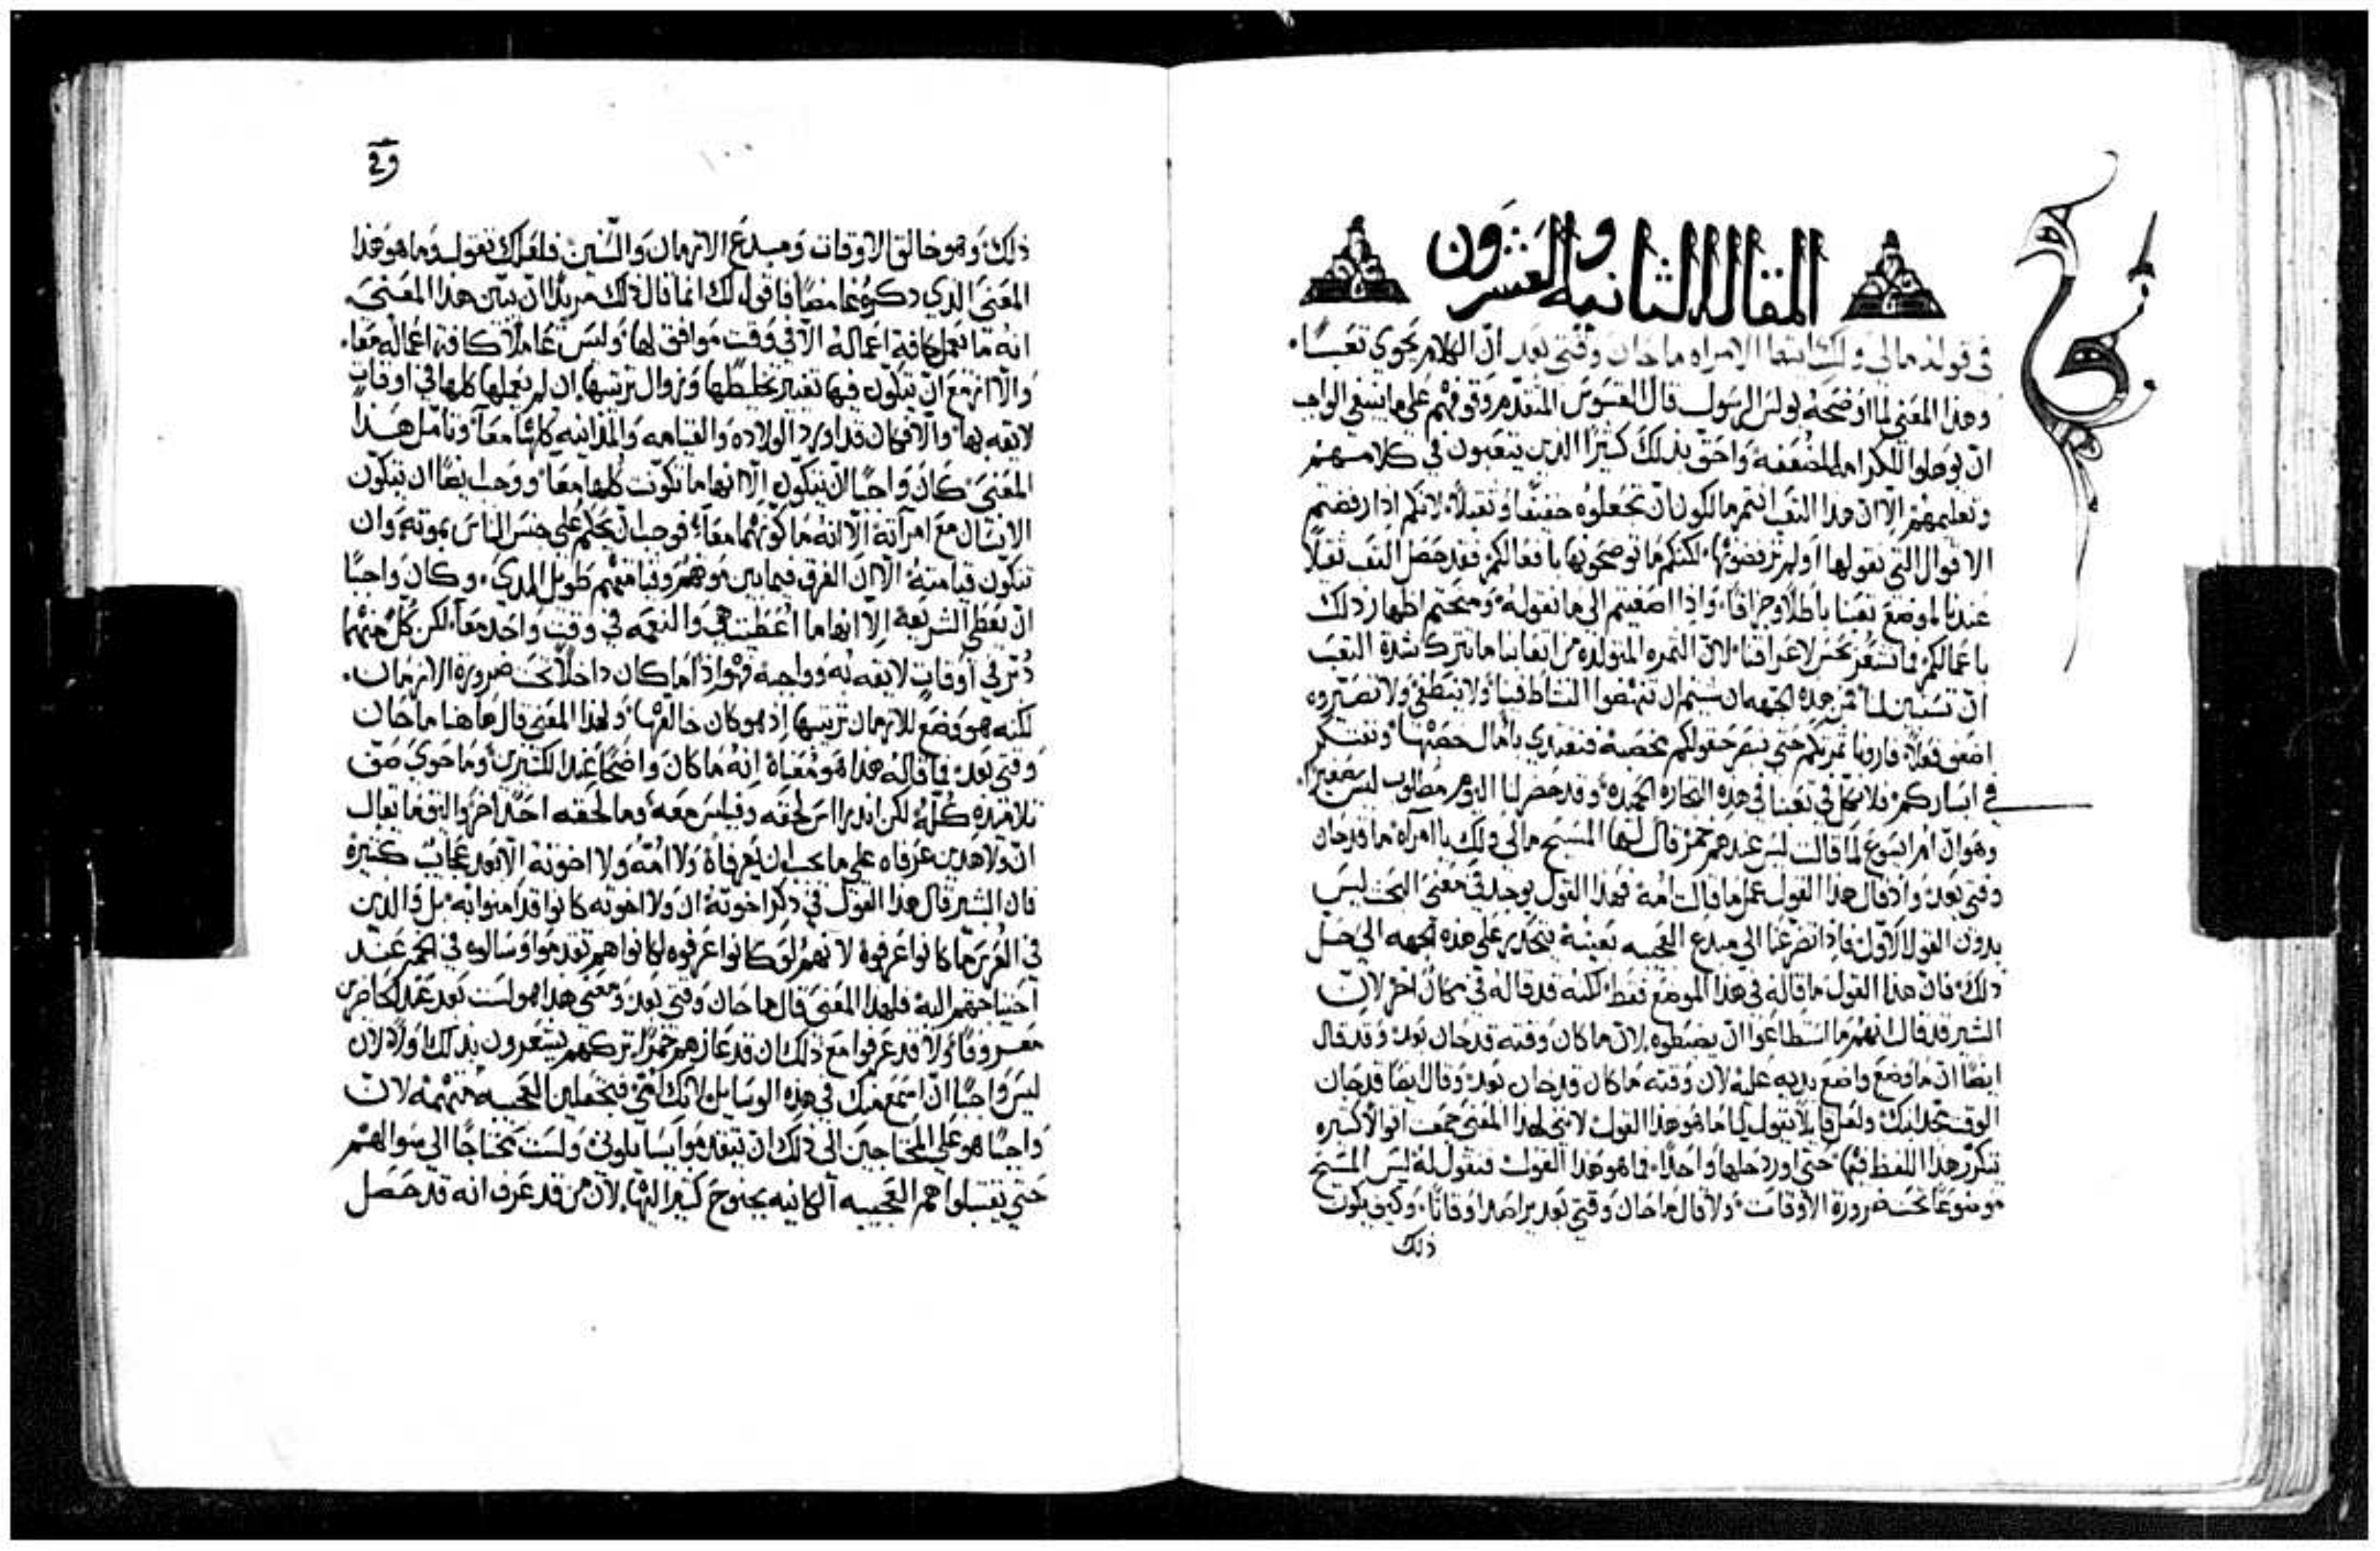 المقاله الثانيه والعشرون
في قوله مالي ولك ايتها الامراه ما حان وقتي بعد ان الكلام يحوي تعبًا.
وهذا المعني لما اوضحه بولس الرسول قال القسوس المتقدمر وقوفهم علي ما ينبغي الواجب
ان يوهلوا للكرامه المضعفه واحق بذلك كثيرًا الذين يتعبون في كلامهم
وتعليمهم الا ان هذا التعب انتم مالكون ان تجعلوه خفيفًا وثقيلاً لانكم اذا رفضتم
الاقوال التي نقولها او لم ترفضوها لكنكم ما توضحونها بافعالكم فقد حصل التعب ثقيلاً
عندنا لموضع تعبنا باطلاً وجزافًا واذا اصغيتم الي ما نقوله ومنحتم اظهار ذلك
باعمالكم فما نشعر نحن لاعراقنا لان الثمره المتولده من اتعابنا ما تترك شدة التعب
ان تستبين لنا فمن هذه الجهه ان شيتم ان تنهضوا النشاط فينا ولا ينطفي ولا تصيروه
اضعف فعلاً فارونا ثمرتكم حتي نبصر حقولكم مخصبه فنغتدي بامال خصبها ونفتكر
في ايساركم فلا نكل في تعبنا في هذه التجاره الحميده وقد حضر لنا اليوم مطلوب ليس صغيرًا.
وهو ان ام ايسوع لما قالت ليس عندهم خمر قال لها المسيح مالي ولك يا امراه ما قد حان
وقتي بعد واذ قال هذا القول عمل ما قالت امه فهذا القول يوجد في معني البحث ليس
بدون القول الاول فاذ تضرعنا الي مبدع العجيبه بعينه ننحدر علي هذه الجهه الي حل
ذلك فان هذا القول ما قاله في هذا الموضع فقط لكنه قد قاله في مكان اخر لان
البشير قد قال انهم ما استطاعوا ان يضبطوه لان ما كان وقته قد حان بعد وقد قال
ايضًا ان ما وضع واضع يديه عليه لان وقته ما كان قد حان بعد وقال ايضًا قد حان
الوقت مجد ابنك ولعل قايلاً يقول لنا ما هو هذا القول لانني لهذا المعني جمعت اقوالاً كثيره
تتكرر هذا اللفظ فيها حتي اورد حلها واحدًا فما هو هذا القول فنقول له ليس المسيح
موضوعًا تحت ضرورة الاوقات ولا قال ما حان وقتي بعد مراصدا اوقاتًا وكيف يكون
ذلك
ذلك وهو خالق الاوقات ومبدع الازمان والسنين فلعلك تقول وما هو هذا
المعني الذي ذكره غامضًا فاقول لك انما قال ذلك مريدًا ان يبين هذا المعني.
انه ما يعمل كافة اعماله الا في وقت موافق لها وليس عاملاً كافة اعماله معا.
والا ازمع ان يتكون فيها تغيير تخليطها وزوال ترتيبها ان لم يعملها كلها في اوقات
لايقه بها والا فكان قد اورد الولاده والقيامه والمداينه كلها معًا وتامل هذا
المعني كان واجبًا ان تتكون الا انها ما تكونت كلها معًا ووجب ايضًا ان يتكون
الانسان مع امراته الا انه ما كونهما معًا فوجب ان يحكم علي جنس الناس بموته وان
تتكون قيامته الا ان الفرق فيما بين موتهم وقيامتهم طويل المدي وكان واجبًا
ان تعطي الشريعه الا انها ما اعطيت هي والنعمه في وقت واحد معًا لكن كل منهما
دبر في اوقات لايقه به وواجبه فهو اذًا ما كان داخلاً تحت ضرورة الازمان.
لكنه هو وضع للازمان ترتيبها اذ هو كان خالقها ولهذا المعني قال هاهنا ما حان
وقتي بعد فما قاله هذا هو معناه انه ما كان واضحًا عند الكثيرين وما حوي صف
تلاميذه كله لكن اندراس لحقه وفيلبس معه وما لحقه احد اخر واليق ما يقال
ان ولا هذين عرفاه علي ما يجب ان يعرفاه ولا امه ولا اخوته الا بعد عجايب كثيره
فان البشير قال هذا القول في ذكر اخوته ان ولا اخوته كانوا قد امنوا به بل والذين
في العرس ما كانوا عرفوه لانهم لو كانوا عرفوه لكانوا هم تقدموا وسالوه في الخمر عند
احتياجهم اليه فلهذا المعني قال ما حان وقتي بعد ومعني هذا هو لست بعد عند الحاضرين
معروفًا ولا قد عرفوا مع ذلك ان قد عازهم خمرًا تركتهم يشعرون بذلك اولاً لان
ليس واجبًا ان اسمع منك في هذه الوسايل لانك امي فتجعلين العجيبه متهمه لان
واجبًا هو علي المحتاجين الي ذلك ان يتقدموا يسايلوني ولست محتاجًا الي سوالهم
حتي يقتبلوا هم العجيبه الكاينه بجنوح كثير اليها لان من قد عرف انه قد حصل